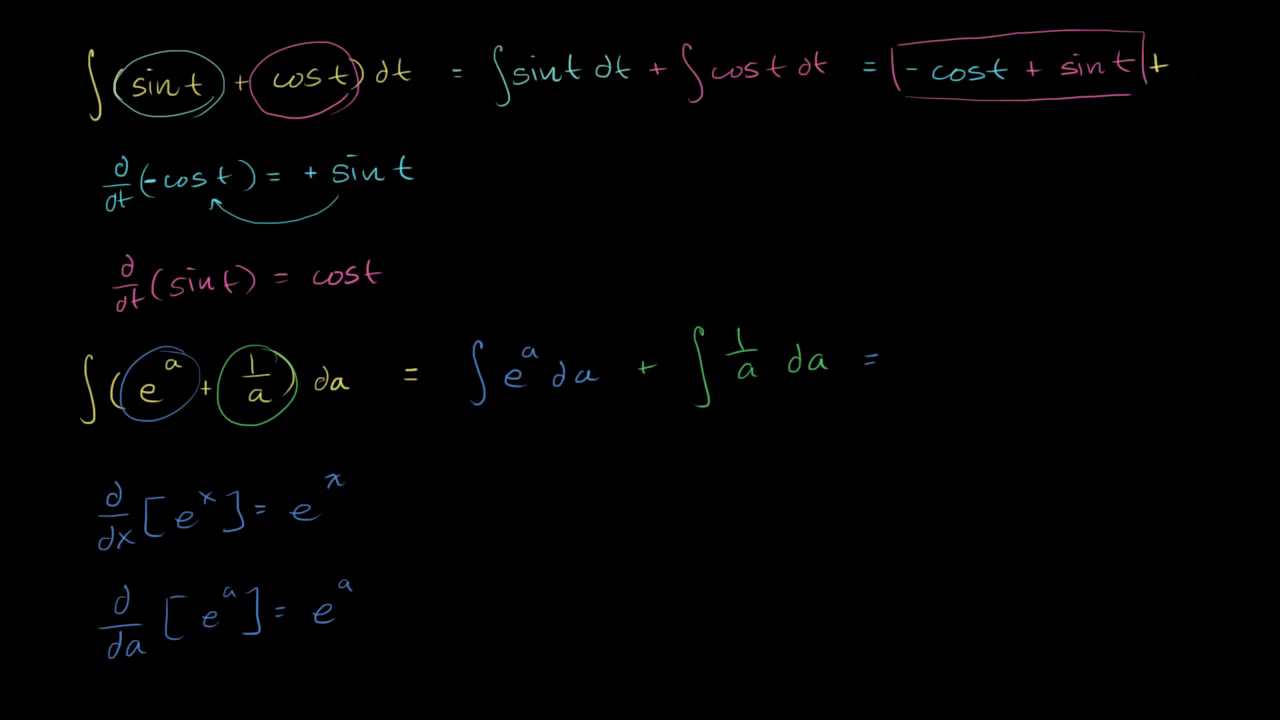 ∫(sin t + cos t) dt = ∫sin t dt + ∫cos t dt = - cos t + sin t +
d/dt (-cos t) = + sin t
d/dt (sin t) = cos t
∫(e^a + 1/a) da = ∫ e^a da + ∫ 1/a da =
d/dx [e^x] = e^x
d/da [e^a] = e^a